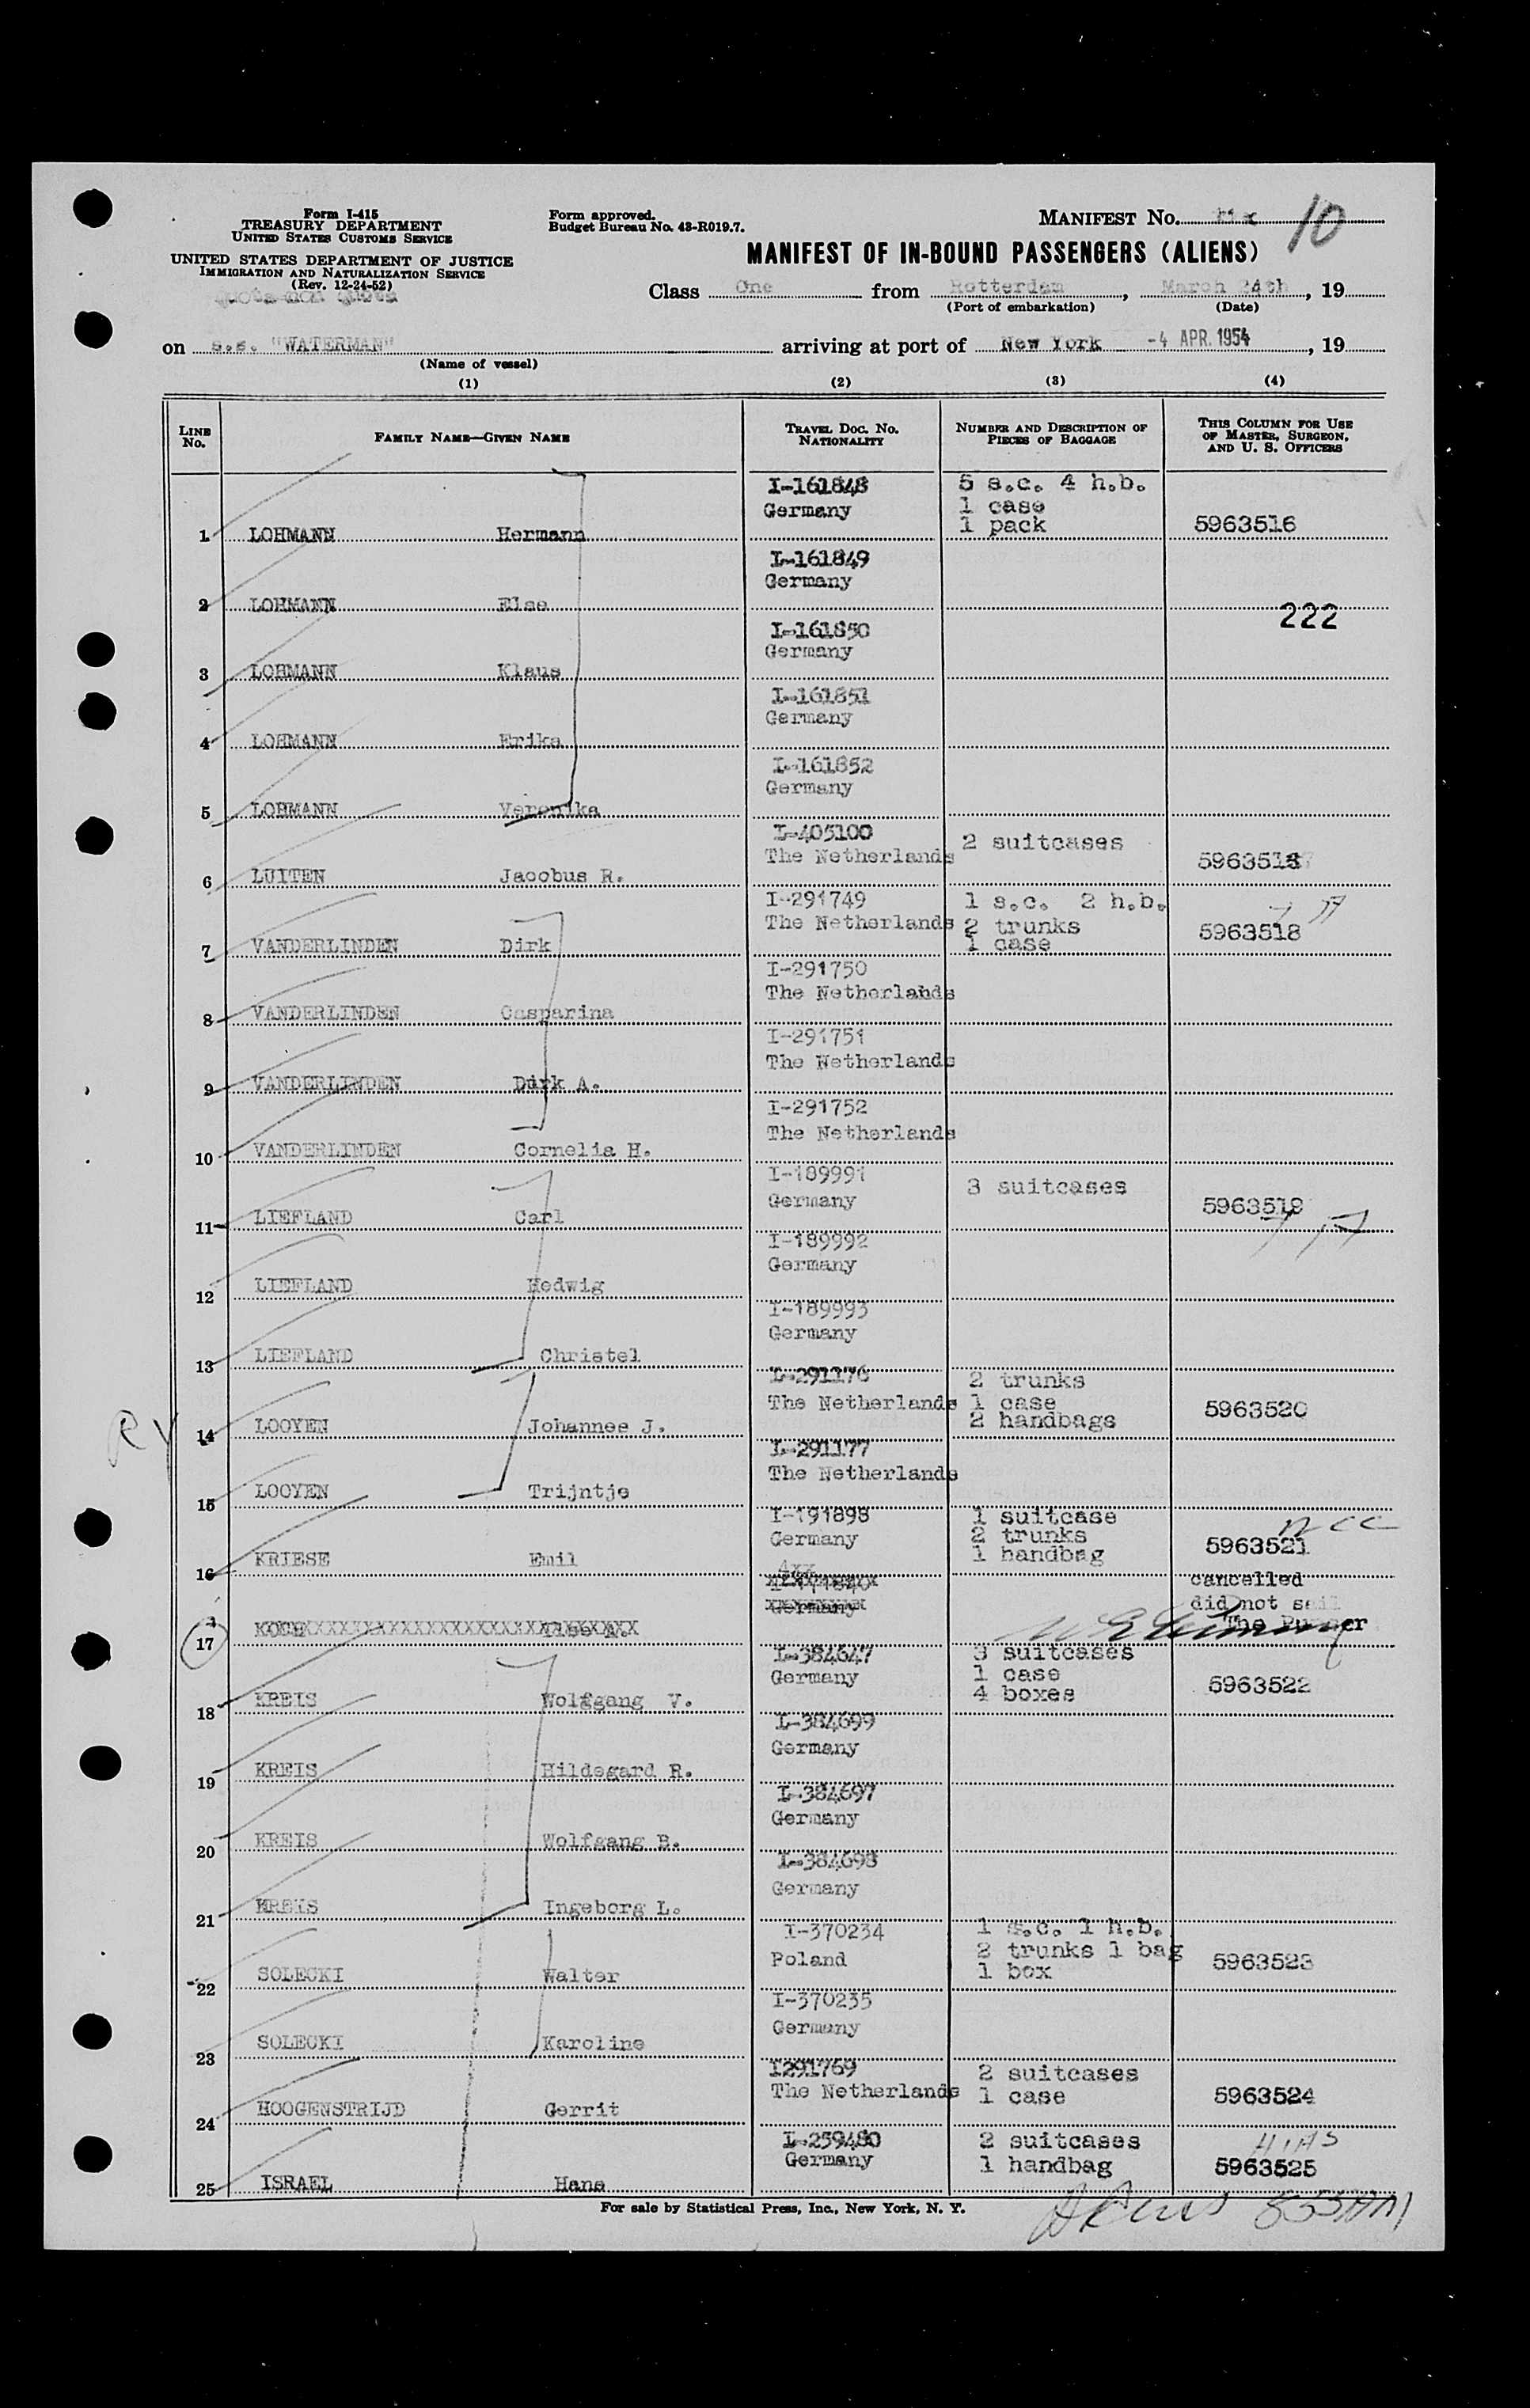 Form I-415
TREASURY DEPARTMENT
UNITED STATES CUSTOMS SERVICE
UNITED STATES DEPARTMENT OF JUSTICE
IMMIGRATION AND NATURALIZATION SERVICE
(Rev. 12-24-52)
Quota-non quota
Form approved.
Budget Bureau No. 43-R019.7.
MANIFEST No. 10
MANIFEST OF IN-BOUND PASSENGERS (ALIENS)
Class One from Rotterdam, March 24th, 19
(Port of embarkation) (Date)
on s.s. "WATERMAN" arriving at port of New York -4 APR. 1954, 19
(Name of vessel)
(1) (2) (3) (4)
LINE No. FAMILY NAME—GIVEN NAME TRAVEL DOC. No. NATIONALITY NUMBER AND DESCRIPTION OF PIECES OF BAGGAGE THIS COLUMN FOR USE OF MASTER, SURGEON, AND U. S. OFFICERS
I-161848 5 s.c. 4 h.b.
Germany 1 case
1 LOHMANN Hermann 1 pack 5963516
I-161849
Germany
2 LOHMANN Else 222
I-161850
Germany
3 LOHMANN Klaus
I-161851
Germany
4 LOHMANN Erika
I-161852
Germany
5 LOHMANN Veronika
I-405100 2 suitcases
The Netherlands
6 LUITEN Jacobus R.
I-291749 1 s.c. 2 h.b.
The Netherlands 2 trunks 5963518
7 VANDERLINDEN Dirk 1 case
I-291750
The Netherlands
8 VANDERLINDEN Casparina
I-291751
The Netherlands
9 VANDERLINDEN Dirk A.
I-291752
The Netherlands
10 VANDERLINDEN Cornelia H.
I-189991 3 suitcases
Germany 5963519
11 LIEFLAND Carl
I-189992
Germany
12 LIEFLAND Hedwig
I-189993
Germany
13 LIEFLAND Christel
I-291176 2 trunks
The Netherlands 1 case 5963520
14 LOOYEN Johannes J. 2 handbags
I-291177
The Netherlands
15 LOOYEN Trijntje
I-191898 1 suitcase
Germany 2 trunks 5963521
16 KRIESE Emil 1 handbag
cancelled
Germany did not sail
17 KOCH The Purser
I-384647 3 suitcases
Germany 1 case 5963522
18 KREIS Wolfgang V. 4 boxes
I-384699
Germany
19 KREIS Hildegard R.
I-384697
Germany
20 KREIS Wolfgang B.
I-384698
Germany
21 KREIS Ingeborg L.
I-370234 1 s.c. 1 h.b.
Poland 2 trunks 1 bag 5963523
22 SOLECKI Walter 1 box
I-370235
Germany
23 SOLECKI Karoline
I291769 2 suitcases
The Netherlands 1 case 5963524
24 HOOGENSTRIJD Gerrit
I-259480 2 suitcases HIAS
Germany 1 handbag 5963525
25 ISRAEL Hans
For sale by Statistical Press, Inc., New York, N. Y.